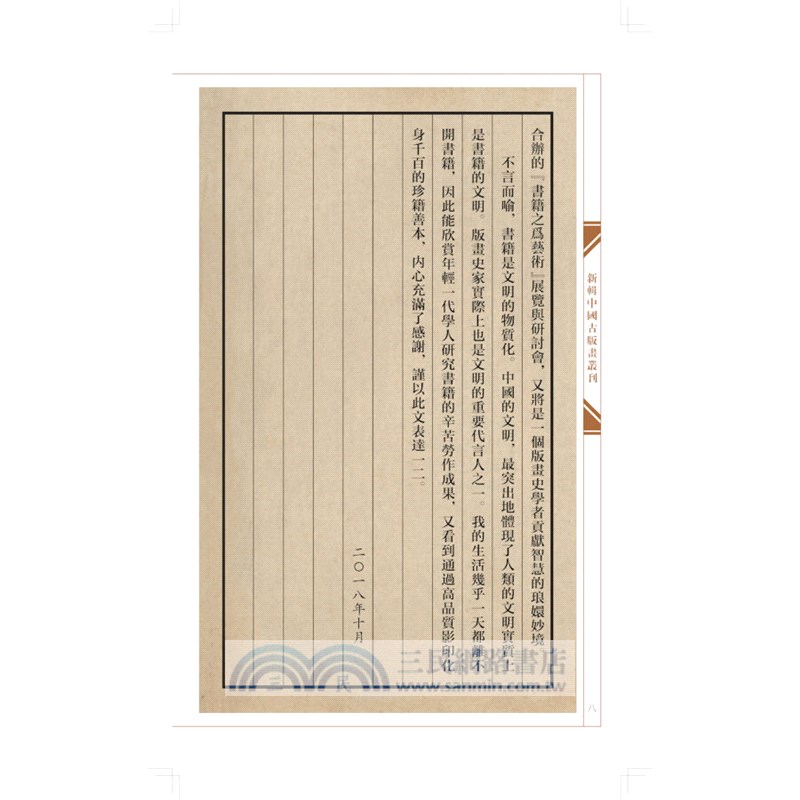 合辦的『書籍之爲藝術』展覽與研討會，又將是一個版畫史學者貢獻智慧的琅嬛妙境。
不言而喻，書籍是文明的物質化。中國的文明，最突出地體現了人類的文明實質上
是書籍的文明。版畫史家實際上也是文明的重要代言人之一。我的生活幾乎一天都離不
開書籍，因此能欣賞年輕一代學人研究書籍的辛苦勞作成果，又看到通過高品質影印化
身千百的珍籍善本，内心充滿了感謝，謹以此文表達一二。
二〇一八年十月
新輯中國古版畫叢刊
八
三民網路書店
三民
www.sanmin.com.tw